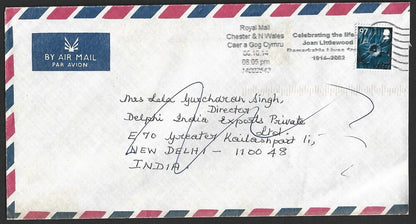 BY AIR MAIL
PAR AVION
Royal Mail
Chester & N Wales
Caer a Gog Cymru
06.10.14
08:05 pm
14002543
Celebrating the life
Joan Littlewood
1914-2002
97
Mrs Lala Gurcharan Singh,
Director
Delphi India Exports Private
Ltd.
E 70 Greater Kailashpart 1i,
NEW DELHI - 110048
INDIA